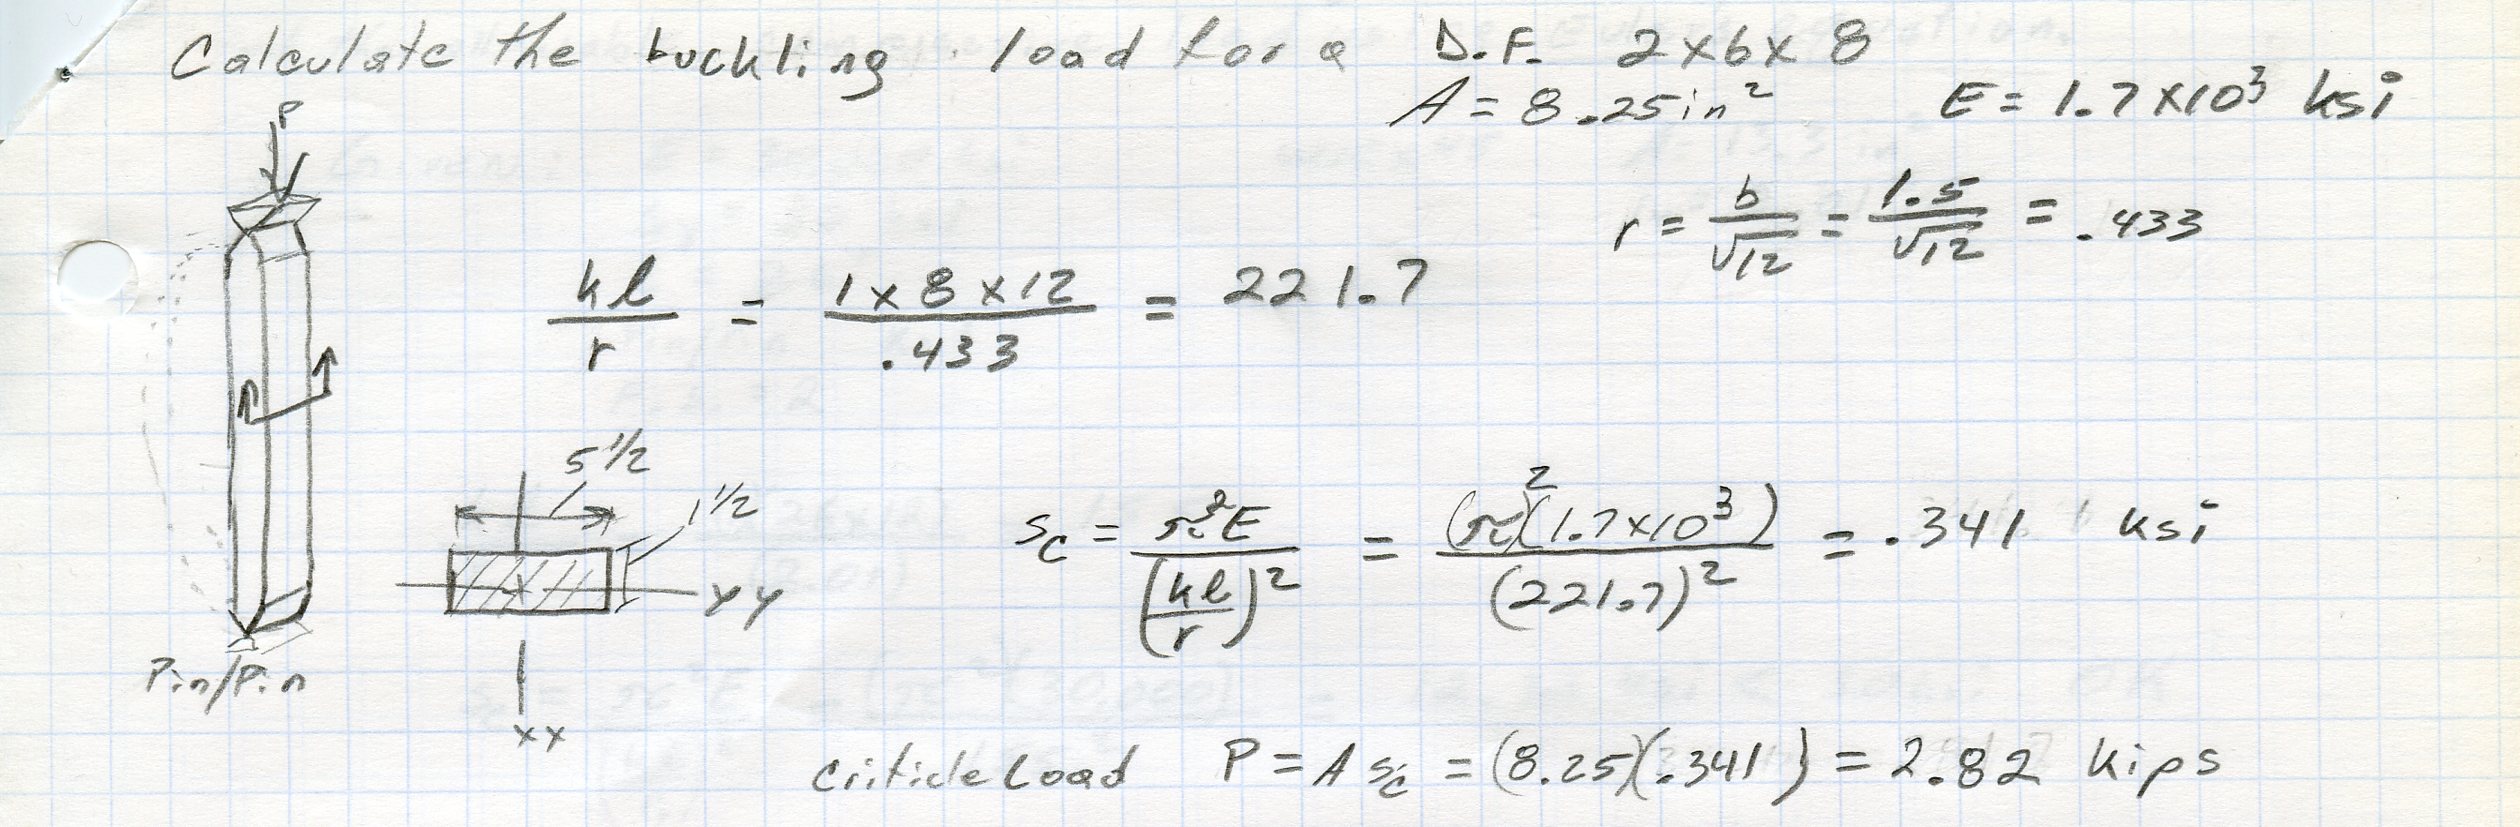 Calculate the buckling load for a D.F. 2x6x8
A = 8.25 in² E = 1.7 x10³ ksi
P
r = b/√12 = 1.5/√12 = .433
kl/r = 1 x 8 x 12/.433 = 221.7
5 1/2
1 1/2
s_c = π²E/(kl/r)² = (π)²(1.7x10³)/(221.7)² = .341 ksi
YY
Pin/Pin
XX
criticle load P = A s_c = (8.25)(.341) = 2.82 kips